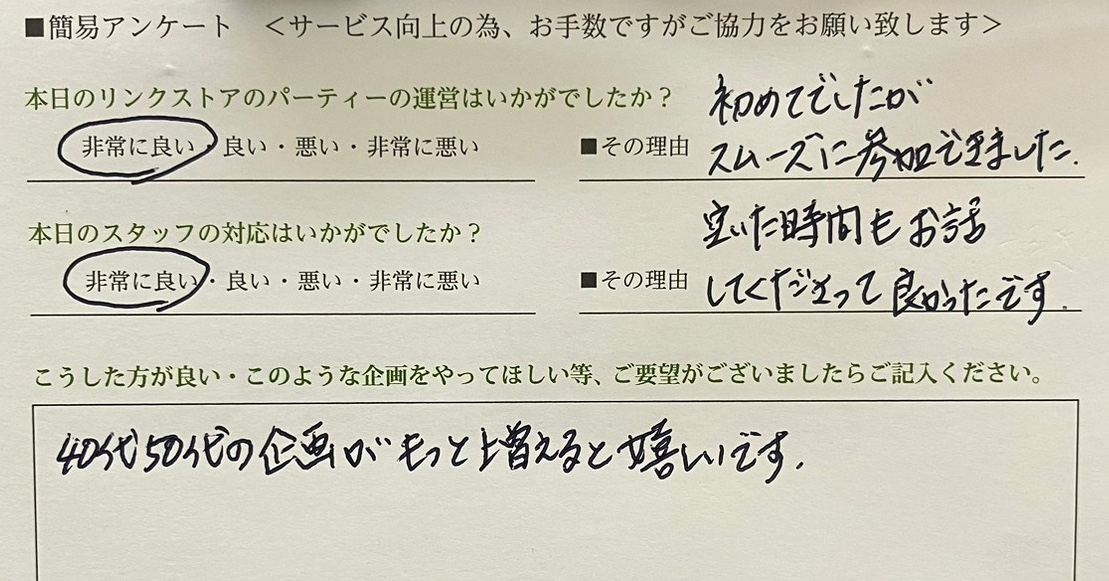 ■簡易アンケート　＜サービス向上の為、お手数ですがご協力をお願い致します＞
本日のリンクストアのパーティーの運営はいかがでしたか？
初めてでしたが
非常に良い・良い・悪い・非常に悪い
■その理由
スムーズに参加できました.
本日のスタッフの対応はいかがでしたか？
空いた時間もお話
非常に良い・良い・悪い・非常に悪い
■その理由
してくださって良かったです.
こうした方が良い・このような企画をやってほしい等、ご要望がございましたらご記入ください。
40代50代の企画がもっと増えると嬉しいです.